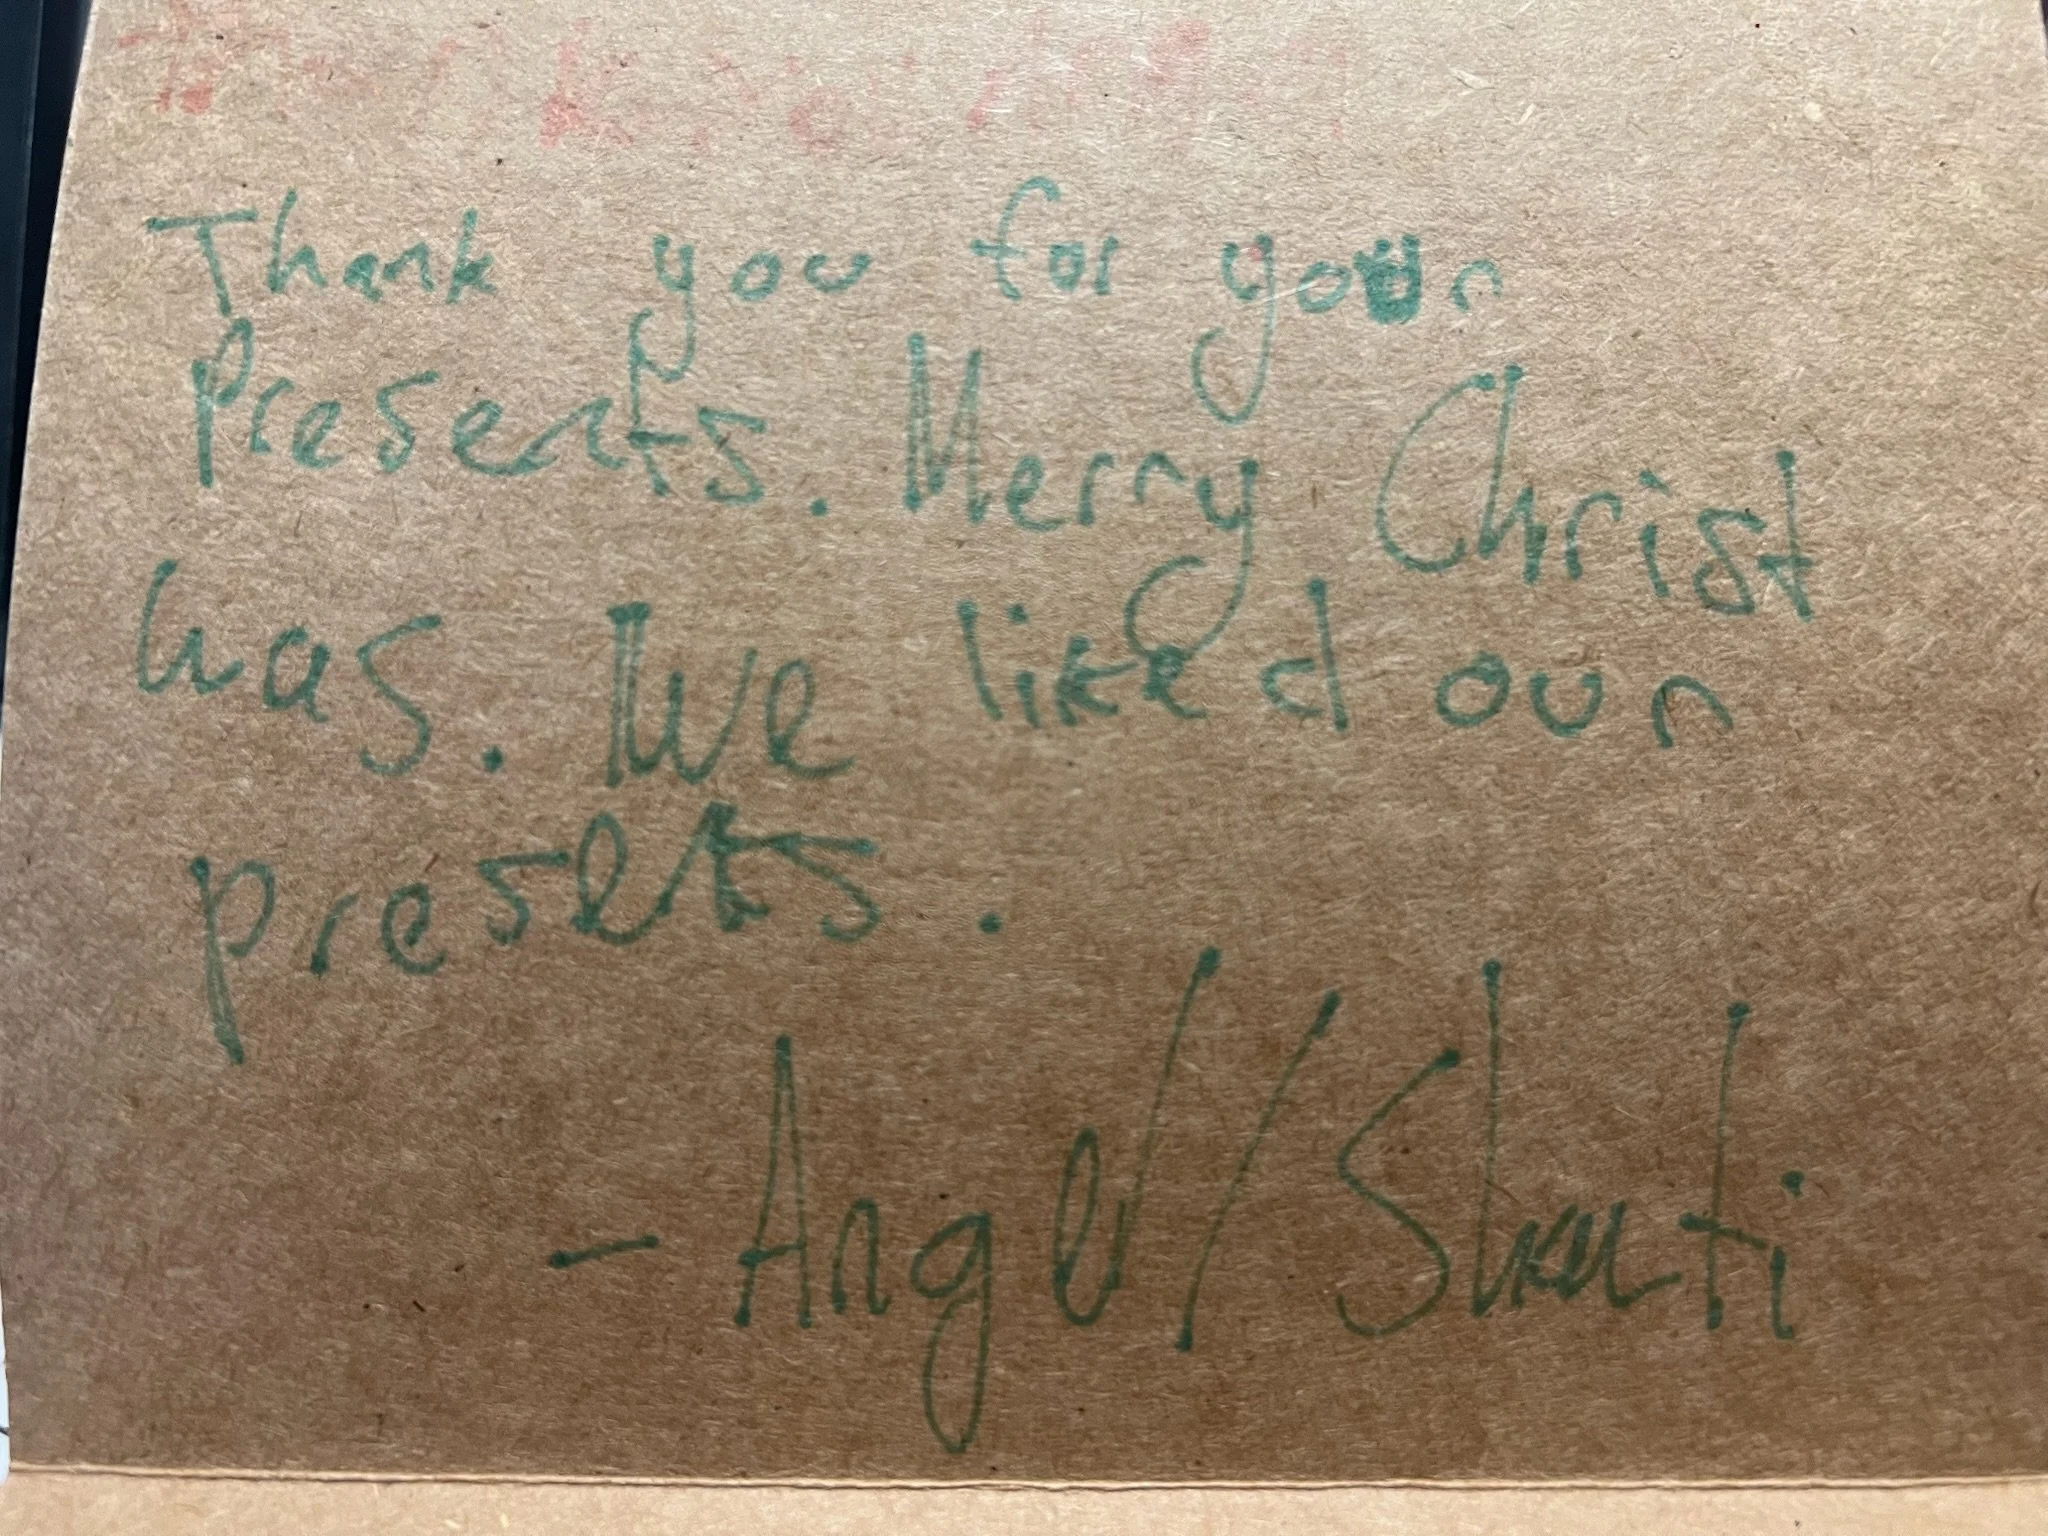 Thank you for your
Presents. Merry Christ
was. We liked our
presets.
- Angel/Skuti